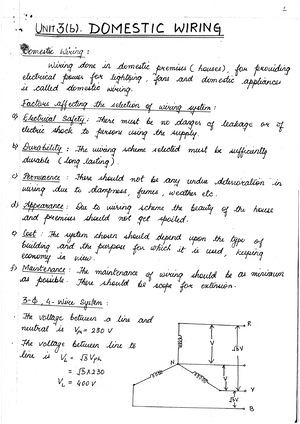 1
UNIT 3(b). DOMESTIC WIRING
Domestic Wiring :
Wiring done in domestic premises (houses), for providing
electrical power for lightning, fans and domestic appliances
is called domestic wiring.
Factors affecting the selection of wiring system:
a) Electrical Safety: There must be no danger of leakage or of
electric shock to persons using the supply.
b) Durability : The wiring scheme selected must be sufficiently
durable (long lasting).
c) Permanence : There should not be any undue deterioration in
wiring due to dampness, fumes, weather etc.
d) Appearance: Due to wiring scheme the beauty of the house
and premises should not get spoiled.
e) Cost : The system chosen should depend upon the type of
building and the purpose for which it is used, keeping
economy in view.
f) Maintenance : The maintenance of wiring should be as minimum
as possible. There should be scope for extension.
3-Φ, 4-Wire System :
The voltage between a line and
neutral is Vph = 230 V
The voltage between line to
line is VL = √3 Vph
= √3 x 230
VL = 400 V
R
V
√3V
N
V
Y
√3V
B